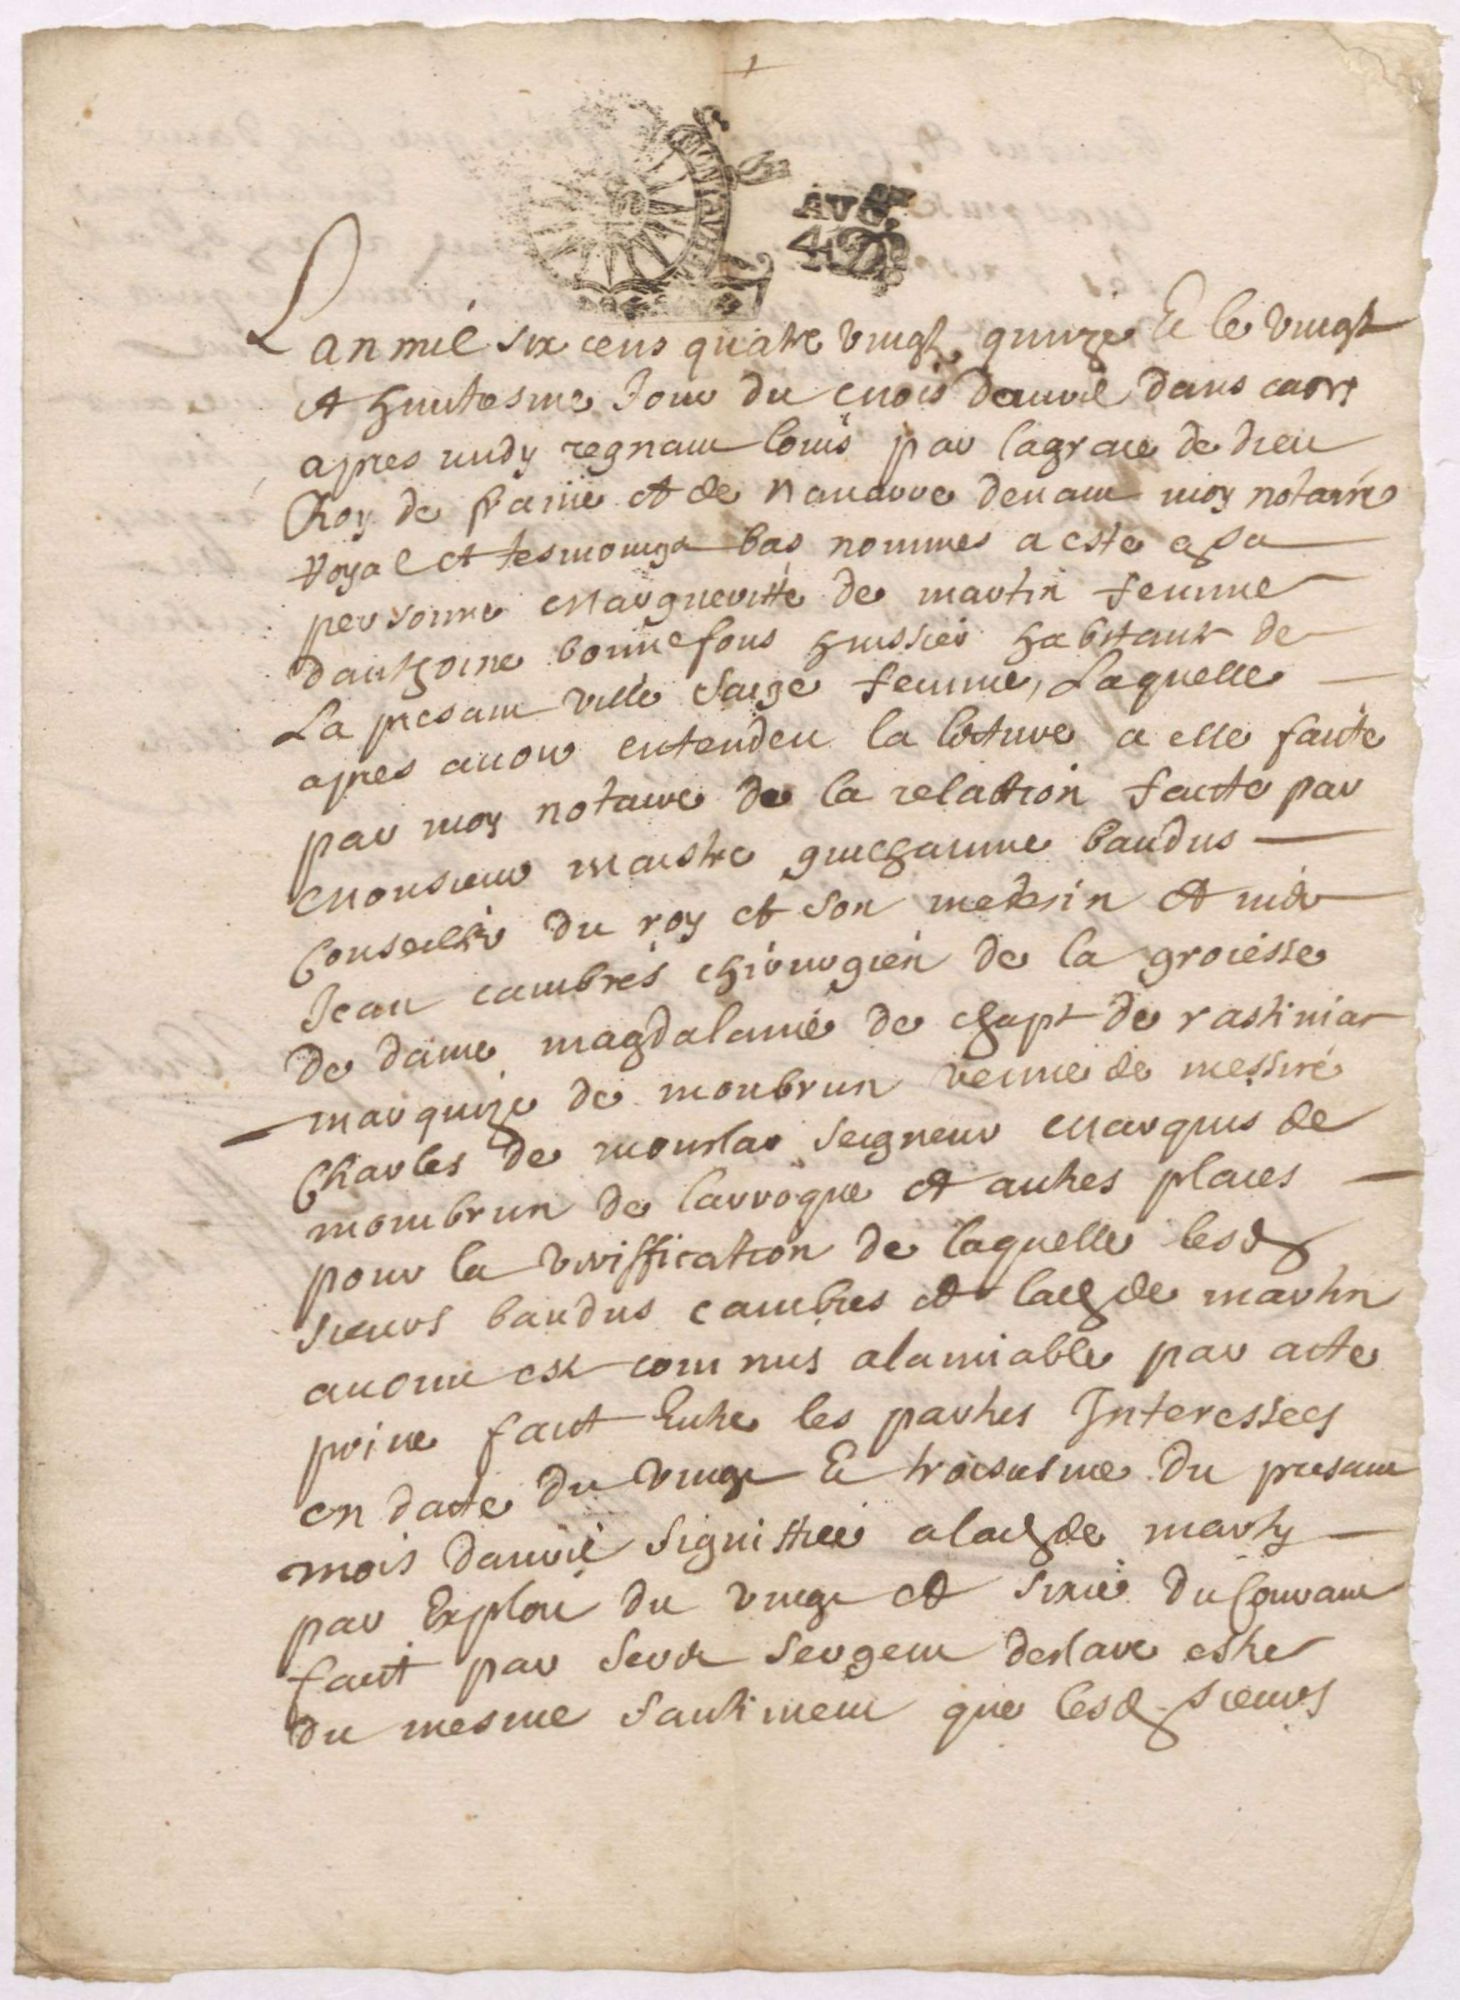 MONTAVB
AVG.
4 D
L an mil six cens quatre vingt quinze & le vingt
et huictesme Jour du mois dauril dans caors
apres midy regnant louis par la grace de dieu
Roy de france et de nauarre deuant moy notaire
royal et tesmoings bas nommes a este en sa
personne Margueritte de martin femme
danthoine bonnefous huissier habitant de
La presant ville saige femme, Laquelle
apres auoir entendeu la lecture a elle faicte
par moy notaire de la relaction faicte par
Monsieur maistre guilhaume baudus
Conseiller du roy et son medecin et me
Jean cambres chirurgien de la groisesse
de dame magdalaine de chapt de rastiniac
marquize de monbrun veuue de messire
Charles de mourlac seigneur Marquis de
mombrun de larroque et autres places
pour la veriffication de laquelle lesd
sieurs baudus cambres et lad de martin
auoint est commis alamiable par acte
priue faict Entre les parties Interessees
en date du vingt & troisiesme du presant
mois dauril signiffiee a lad de martin
par Exploit du vingt et sixie du Courant
faict par sergent desclare estre
du mesme santiment que lesd sieurs